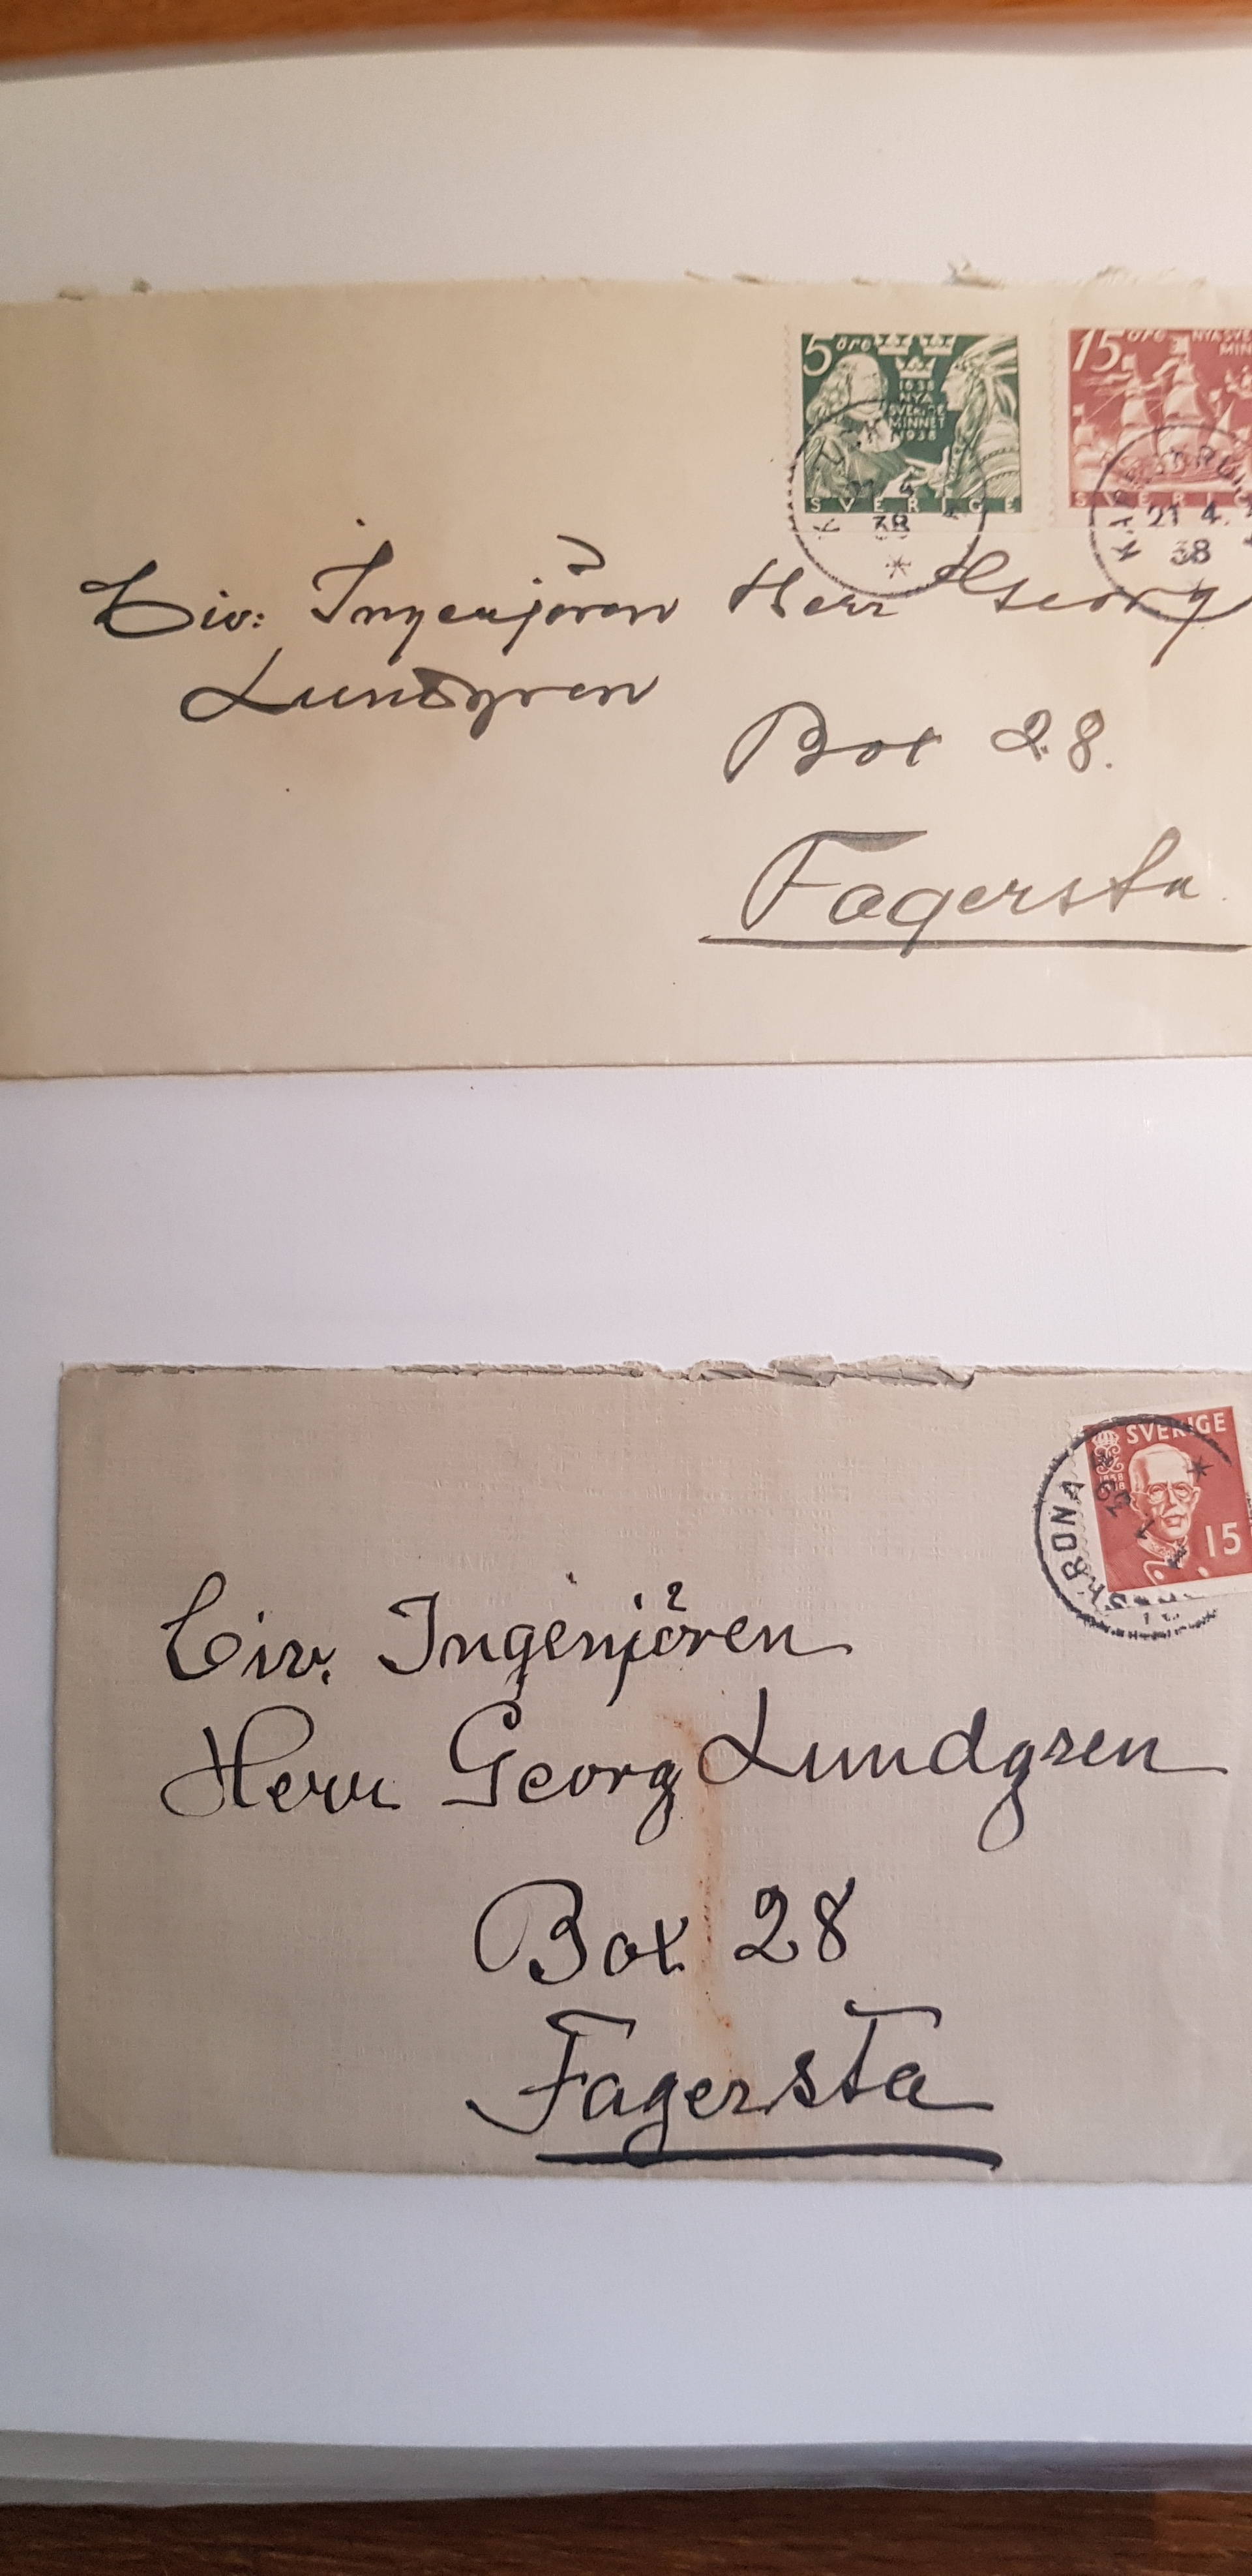 5 öre
1638
NYA
SVERIGE
MINNET
1938
SVERIGE
15 öre
21 4.
38
Civ: Ingenjören Herr Georg
Lundgren
Box 28.
Fagersta.
SVERIGE
15
Civ. Ingenjören
Herr Georg Lundgren
Box 28
Fagersta